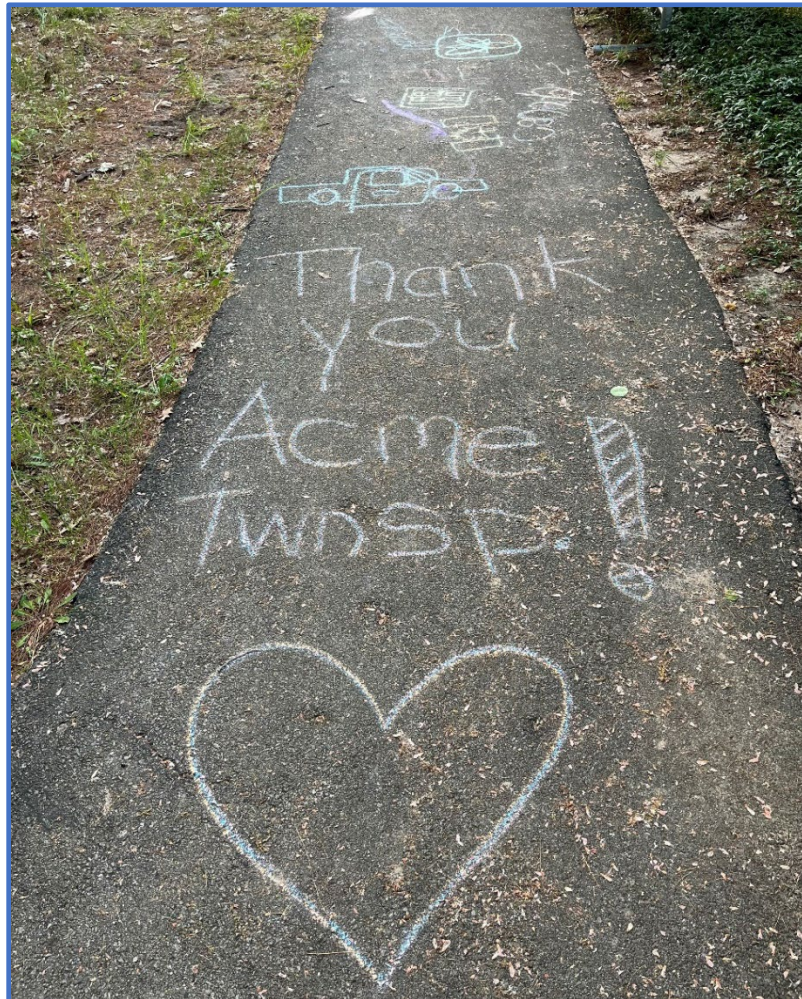 Thank
you
Acme
Twnsp. !